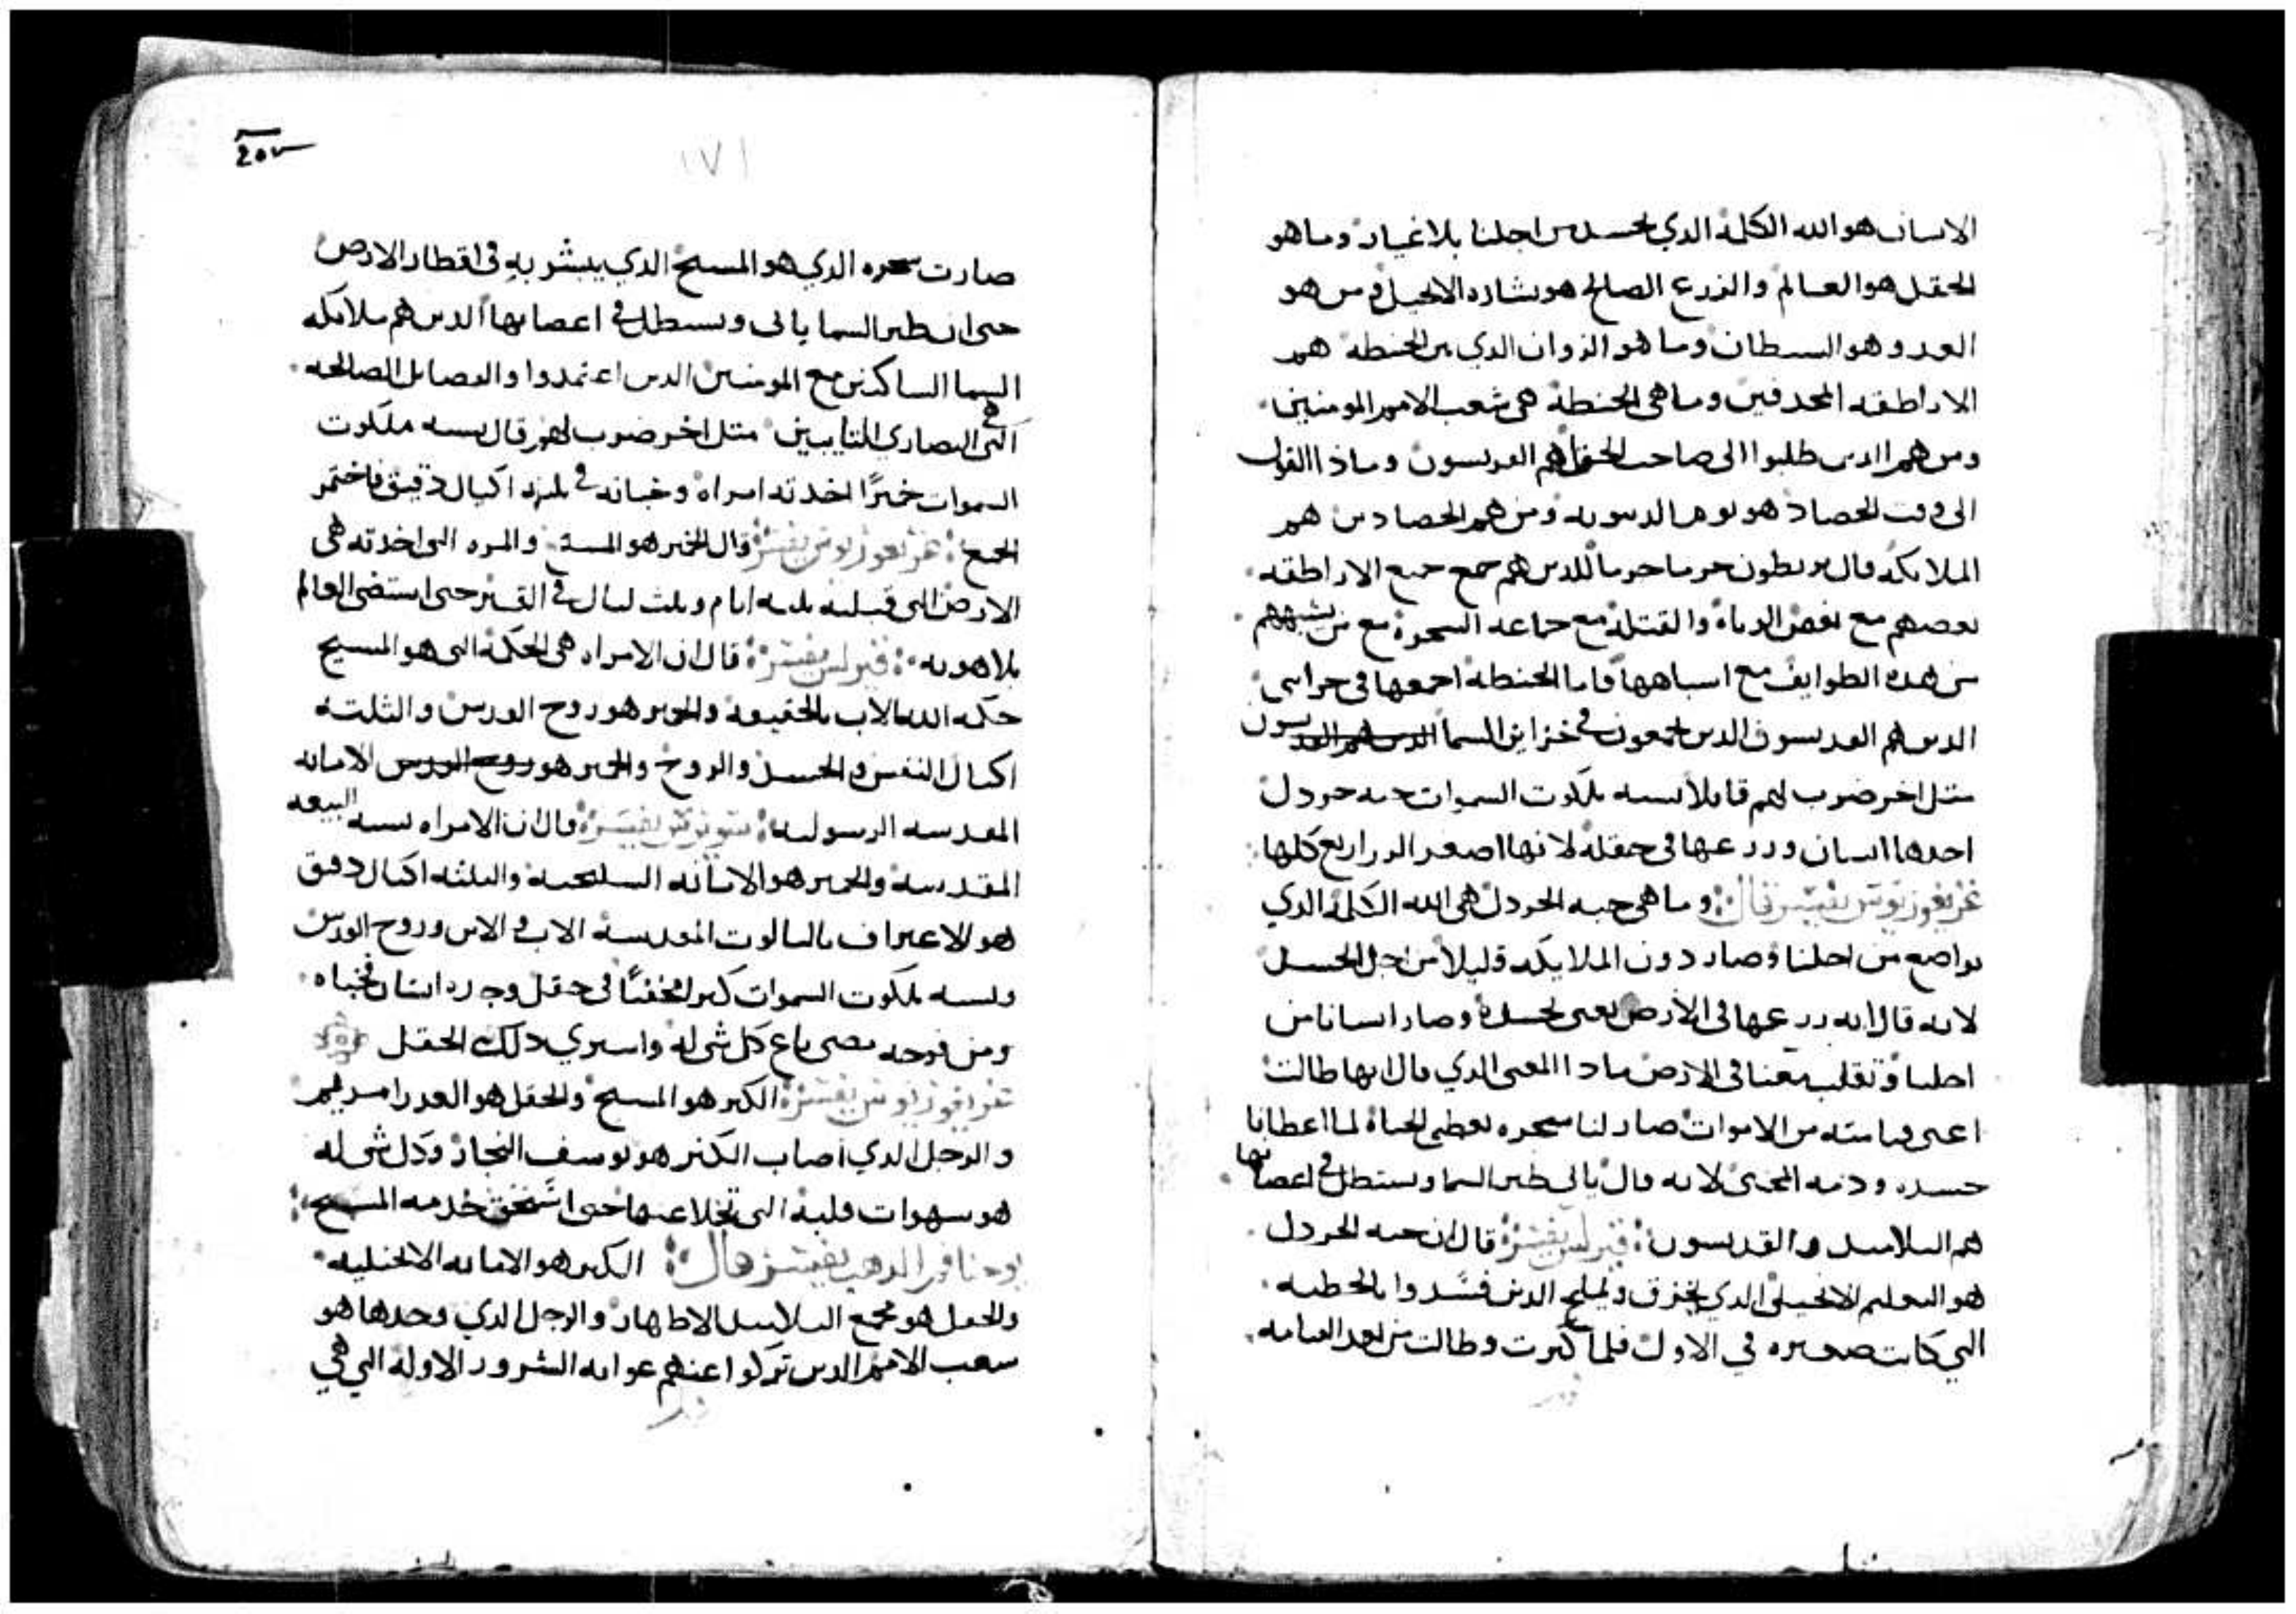 الانسان هو الله الكلمة الدي تجسد من اجلنا بلا غيار وما هو
الحقل هو العالم والزرع الصالح هو بشاره الانجيل ومن هو
العدو هو السيطان وما هو الزوان الدي بين الحنطة هم
الاراطقه المجدفين وما هي الحنطة هي شعب الامم المومنين
ومن هم الدين طلبوا الى صاحب الحقل هم القديسون وماذا القول
الى وقت الحصاد هو يوم الدينونه ومن هم الحصادين هم
الملايكه قال يربطون حزما حزما للدين هم جمع جميع الاراطقه
بعضهم مع بعض الزناه والقتله مع جماعه السحرة مع من يشبههم
من هده الطوايف مع اسباهها فاما الحنطه اجمعها في
الدين هم القديسون الدين يجمعون في خزاين السما الدين هم القديسون
متل اخر ضرب لهم قايلا تسبه ملكوت السموات حبه خردل
اخدها انسان وزرعها في حقله لانها اصغر الزراريع كلها
غريغوريوس يفسر قال وما هي حبه الخردل هي الله الكلمة الدي
تواضع من اجلنا وصار دون الملايكه قليلا من اجل الجسد
لانه قال انه زرعها في الارض يعني تجسده وصار انسانا من
اجلنا وتقلب معنا في الارض مادا المعنى الدي قال انها طالت
اعني قيامته من الاموات صار لنا سجره تعطي الحياة لما اعطانا
جسده ودمه المحيي لانه قال ياتي طير السما ويستظل في اغصانها
هم التلاميد والقديسون كيرلس يفسر قال ان حبه الخردل
هو التعليم الانجيلي الدي يحرق ويملح الدين فسدوا بالخطيه
التي كانت صغيره في الاول فلما كبرت وطالت من بعد القيامه
١٧١
صارت سجره الدي هو المسيح الدي يبشر به في اقطار الارض
حتى ان طير السما ياتي ويستظل في اغصانها الدين هم ملايكه
السما الساكنين مع المومنين الدين اعتمدوا والفضايل الصالحه
التي هي النصارى التايبين متل اخر ضرب لهم قال يسبه ملكوت
السموات خميرًا اخدته امراه وخباته في تلته اكيال دقيق فاختمر
الجميع غريغوريوس يفسر قال الخمير هو المسيح والمره التي اخدته هي
الارض التي قبلته تلته ايام وتلت ليال في القبر حتى استضى العالم
بلاهوته كيرلس يفسر قال ان الامراه هي الحكمة التي هو المسيح
حكمه الله الاب بالحقيقة والخمير هو روح القدس والتلته
اكيال النفس والجسد والروح والخمير هو روح القدس الامانه
المقدسه الرسوليه ساويرس يفسر قال ان الامراه تسبه البيعه
المقدسه والخمير هو الامانه السليحيه والتلته اكيال دقيق
هو الاعتراف بالتالوت المقدسة الاب و الابن وروح القدس
وتسبه ملكوت السموات كنز مخفيًا في حقل وجده انسان فخباه
ومن فرحه مضى باع كل شي له واسترى دلك الحقل
غريغوريوس يفسر الكنز هو المسيح والحقل هو العدرا مريم
والرجل الدي اصاب الكنز هو يوسف النجار وكل شي له
هو سهوات قلبه التي تخلا عنها حتى استحق خدمه المسيح
يوحنا فم الدهب يفسر قال الكنز هو الامانه الانجيليه
والحقل هو مجمع التلاميد الاطهار والرجل الدي وجدها هو
سعب الامم الدين تركوا عنهم عوايه الشرور الاولة التي هي